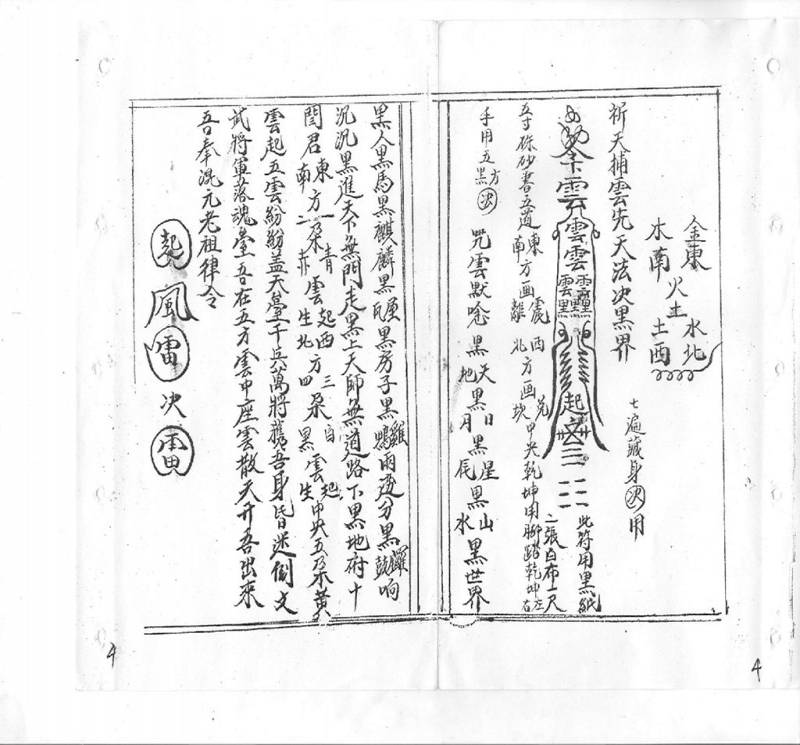 金東
水北
火土
水南
土西
七遍藏身决用
祈天捕雲先天法决黑界
雲
雲雲
起
此符用黑紙
二張白布一尺
五寸硃砂書五道東南方画震離西北方画兌坎中央乾坤用腳踏乾坤左右
手用五方黑决
咒雲默唸黑天地黑日月黑星辰黑山水黑世界
黑人黑馬黑麒麟黑屋瓦黑房子黑雞鴨雨邊分黑鑼鼓响
沉沉黑進天下無門走黑上天師無道路下黑地府十
閻君東南方一二朵青赤雲起生西北方三四朵白黑雲起生中央五朵黃
雲起五雲紛紛盖天臺千兵萬將 吾身皆迷倒文
武將軍落魂臺吾在五方雲中座雲散天开吾出來
吾奉混元老祖律令
起風雷决雷
4
4